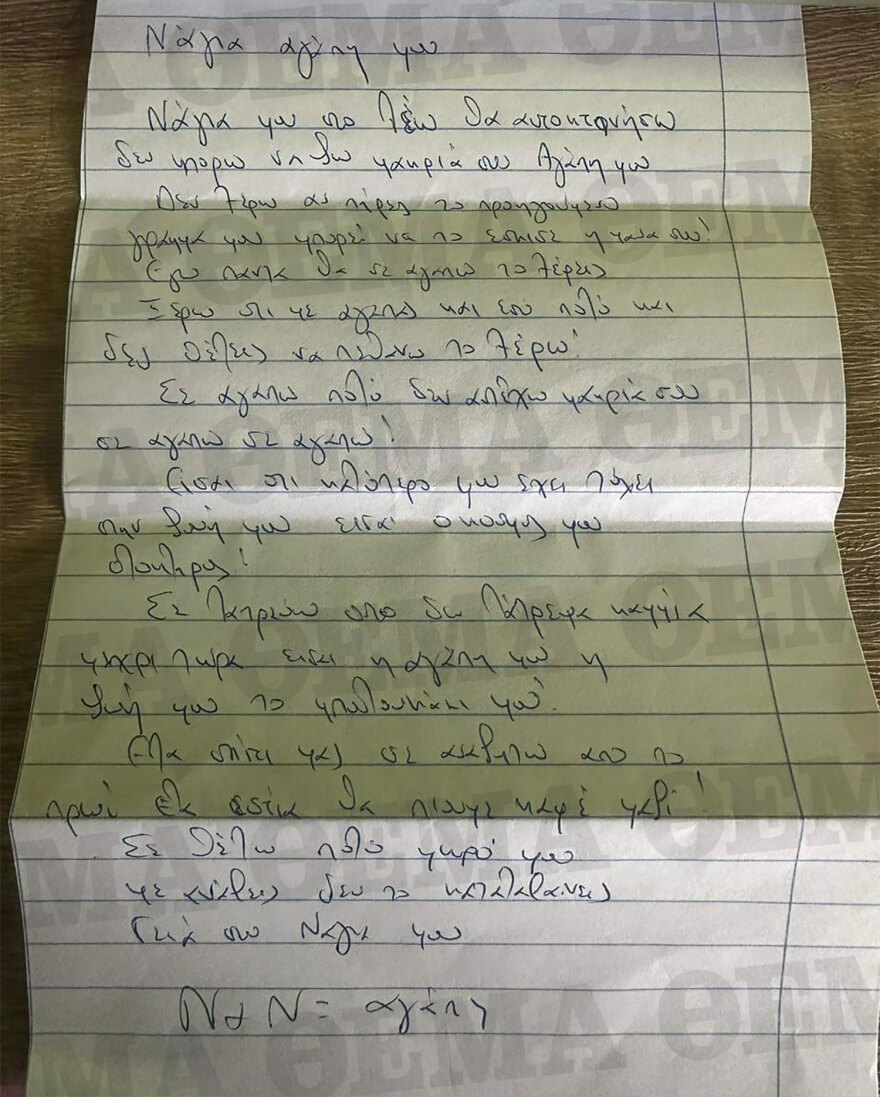 Νάγια αγάπη μου
Νάγια μου στο λέω θα αυτοκτονήσω
δεν μπορω να ζω μακριά σου Αγάπη μου
Δεν ξέρω αν πήρες το προηγούμενο
γράμμα μου μπορεί να το έσκισε η μανα σου!
Εγω παντα θα σε αγαπω το ξέρεις
Ξέρω οτι με αγαπας και εσυ πολύ και
δεν θέλεις να πεθανω το ξέρω!
Σε αγαπω πολύ δεν αντέχω μακριά σου
σε αγαπω σε αγαπω!
Είσαι οτι καλύτερο μου έχει τύχει
στην ζωή μου εισαι ο κοσμος μου
ολοκληρος!
Σε λατρεύω οπο δεν λάτρεψα καμμία
μεχρι τωρα εισαι η αγάπη μου η
ζωή μου το μπουμπουνάκι μου!
Ελα σπίτι μας σε αναζητω απο το
πρωί έλα εστία θα πιουμε καφέ μαζί!
Σε θέλω πολύ μωρό μου
με ανάβεις δεν το καταλαβαινεις
Γειά σου Νάγια μου
Ν + Ν = αγάπη
ΘΕΜΑ